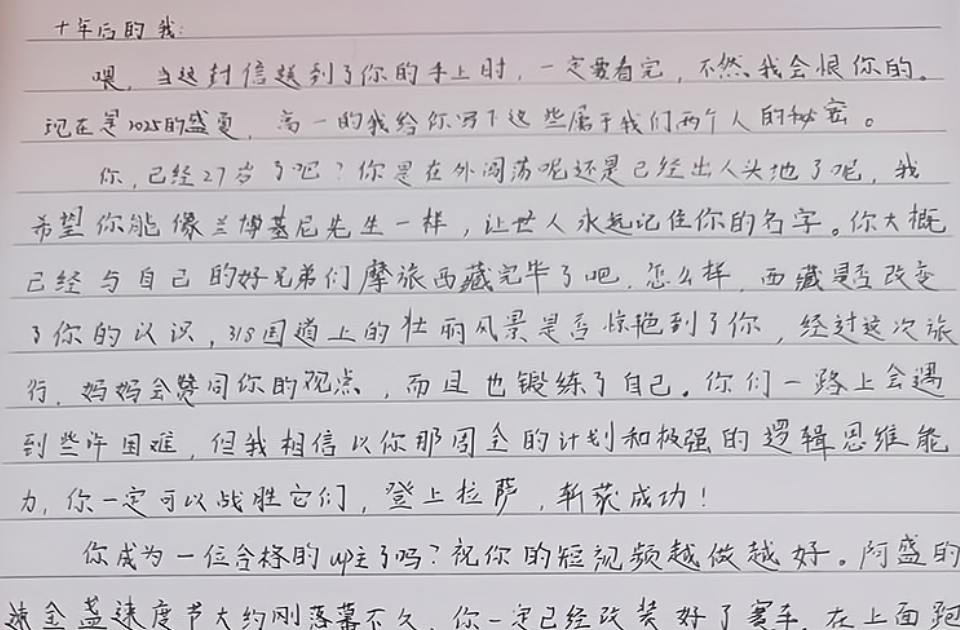 十年后的我:
喂,当这封信送到了你的手上时,一定要看完,不然我会恨你的。
现在是2025的盛夏,高一的我给你写下这些属于我们两个人的秘密。
你,已经27岁了吧?你是在外闯荡呢还是已经出人头地了呢,我
希望你能像兰博基尼先生一样,让世人永远记住你的名字。你大概
已经与自己的好兄弟们摩旅西藏完毕了吧,怎么样,西藏是否改变
了你的认识,318国道上的壮丽风景是否惊艳到了你,经过这次旅
行,妈妈会赞同你的观点,而且也锻练了自己。你们一路上会遇
到些许困难,但我相信以你那周全的计划和极强的逻辑思维能
力,你一定可以战胜它们,登上拉萨,斩获成功!
你成为一位合格的up主了吗?祝你的短视频越做越好。阿盛的
速金盏速度节大约刚落幕不久,你一定已经改装好了赛车,在上面跑